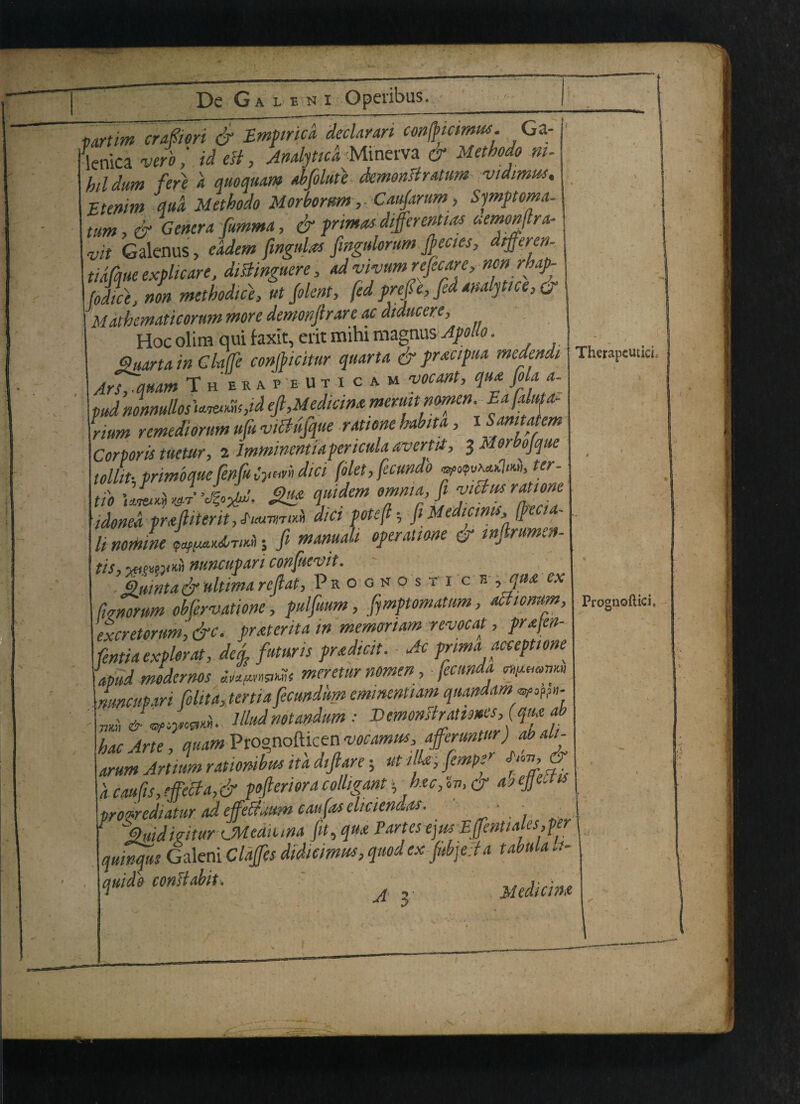 De GALENI Operibus.
partim craßiori & Empiricâ declarari conspicimus. Ga-
lenica verò, id est, Analyticâ Minerva & Methodo ni-
hil dum ferè à quoquam absolutè demonstratum vidimus.
Etenim quâ Methodo Morborum, Causarum, Symptoma-
tum, & Genera summa, & primas differentias demonstra-
vit Galenus, eâdem singulas singulorum species, differen-
tiásque explicare, distinguere, ad vivum resecare, non rhap-
sodicè, non methodicè, ut solent, sed preßè, sed analyticè, &
Mathematicorum more demonstrare ac diducere,
Hoc olim qui faxit, erit mihi magnus Apollo.
Quarta in Classe conspicitur quarta & præcipua medendi
Ars, quam THERAPEUTICAM vocant, quæ sola a-
pud nonnullos ἰατρικῆς, id est, Medicinæ meruit nomen. Ea saluta-
rium remediorum usu victúsque ratione habitâ, 1 Sanitatem
Corporis tuetur, 2 Imminentia pericula avertit, 3 Morbósque
tollit; primóque sensu ὑγιεινὴ dici solet, secundò προφυλακτικὴ, ter-
tiò ἰατρικὴ κατ᾽ ἐξοχήν. Quæ quidem omnia, si victus ratione
idoneâ præstiterit, διαιτητικὴ dici potest; si Medicinis, specia-
li nomine φαρμακευτικὴ; si manuali operatione & instrumen-
tis, χειρουργικὴ nuncupari consuevit.
Quinta & ultima restat, PROGNOSTICE, quæ ex
signorum observatione, pulsuum, symptomatum, actionum,
excretorum, &c. præterita in memoriam revocat, præsen-
sentia explorat, deq; futuris prædicit. Ac primâ acceptione
apud modernos ἀναμνηστικῆς meretur nomen, secundâ σημειωτικὴ
nuncupari solita, tertia secundùm eminentiam quandam προῤῥη-
τικὴ & προγνωστικὴ. Illud notandum: Demonstrationes, (quæ ab
hac Arte, quam Prognosticen vocamus, afferuntur) ab ali-
arum Artium rationibus ita distare; ut illæ, semper διότι, &
à causis, effecta, & posteriora colligant; hæc, ὅτι, & ab effectis
progrediatur ad effectuum causas eliciendas.
Quid igitur Medicina sit, quæ Partes ejus Essentiales, per
quinque Galeni Classes didicimus, quod ex subjecta tabula li-
quidò constabit.
A 3 Medicinæ
Therapeutici.
Prognostici.